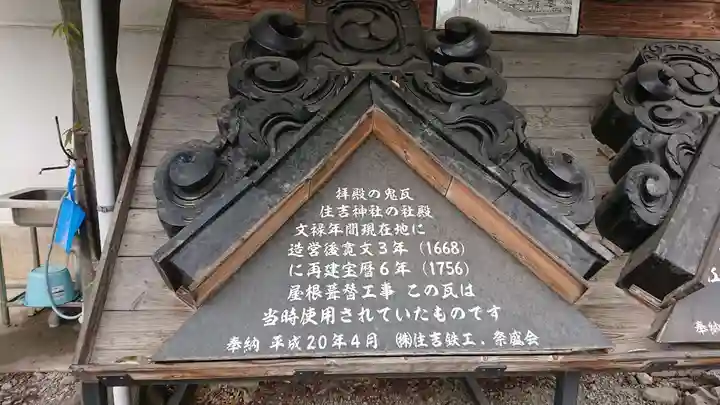 拝殿の鬼瓦
住吉神社の社殿
文禄年間現在地に
造営後寛文3年（1668）
に再建宝暦6年（1756）
屋根葺替工事 この瓦は
当時使用されていたものです
奉納 平成20年4月 ㈱住吉鉄工、祭盛会
奉納